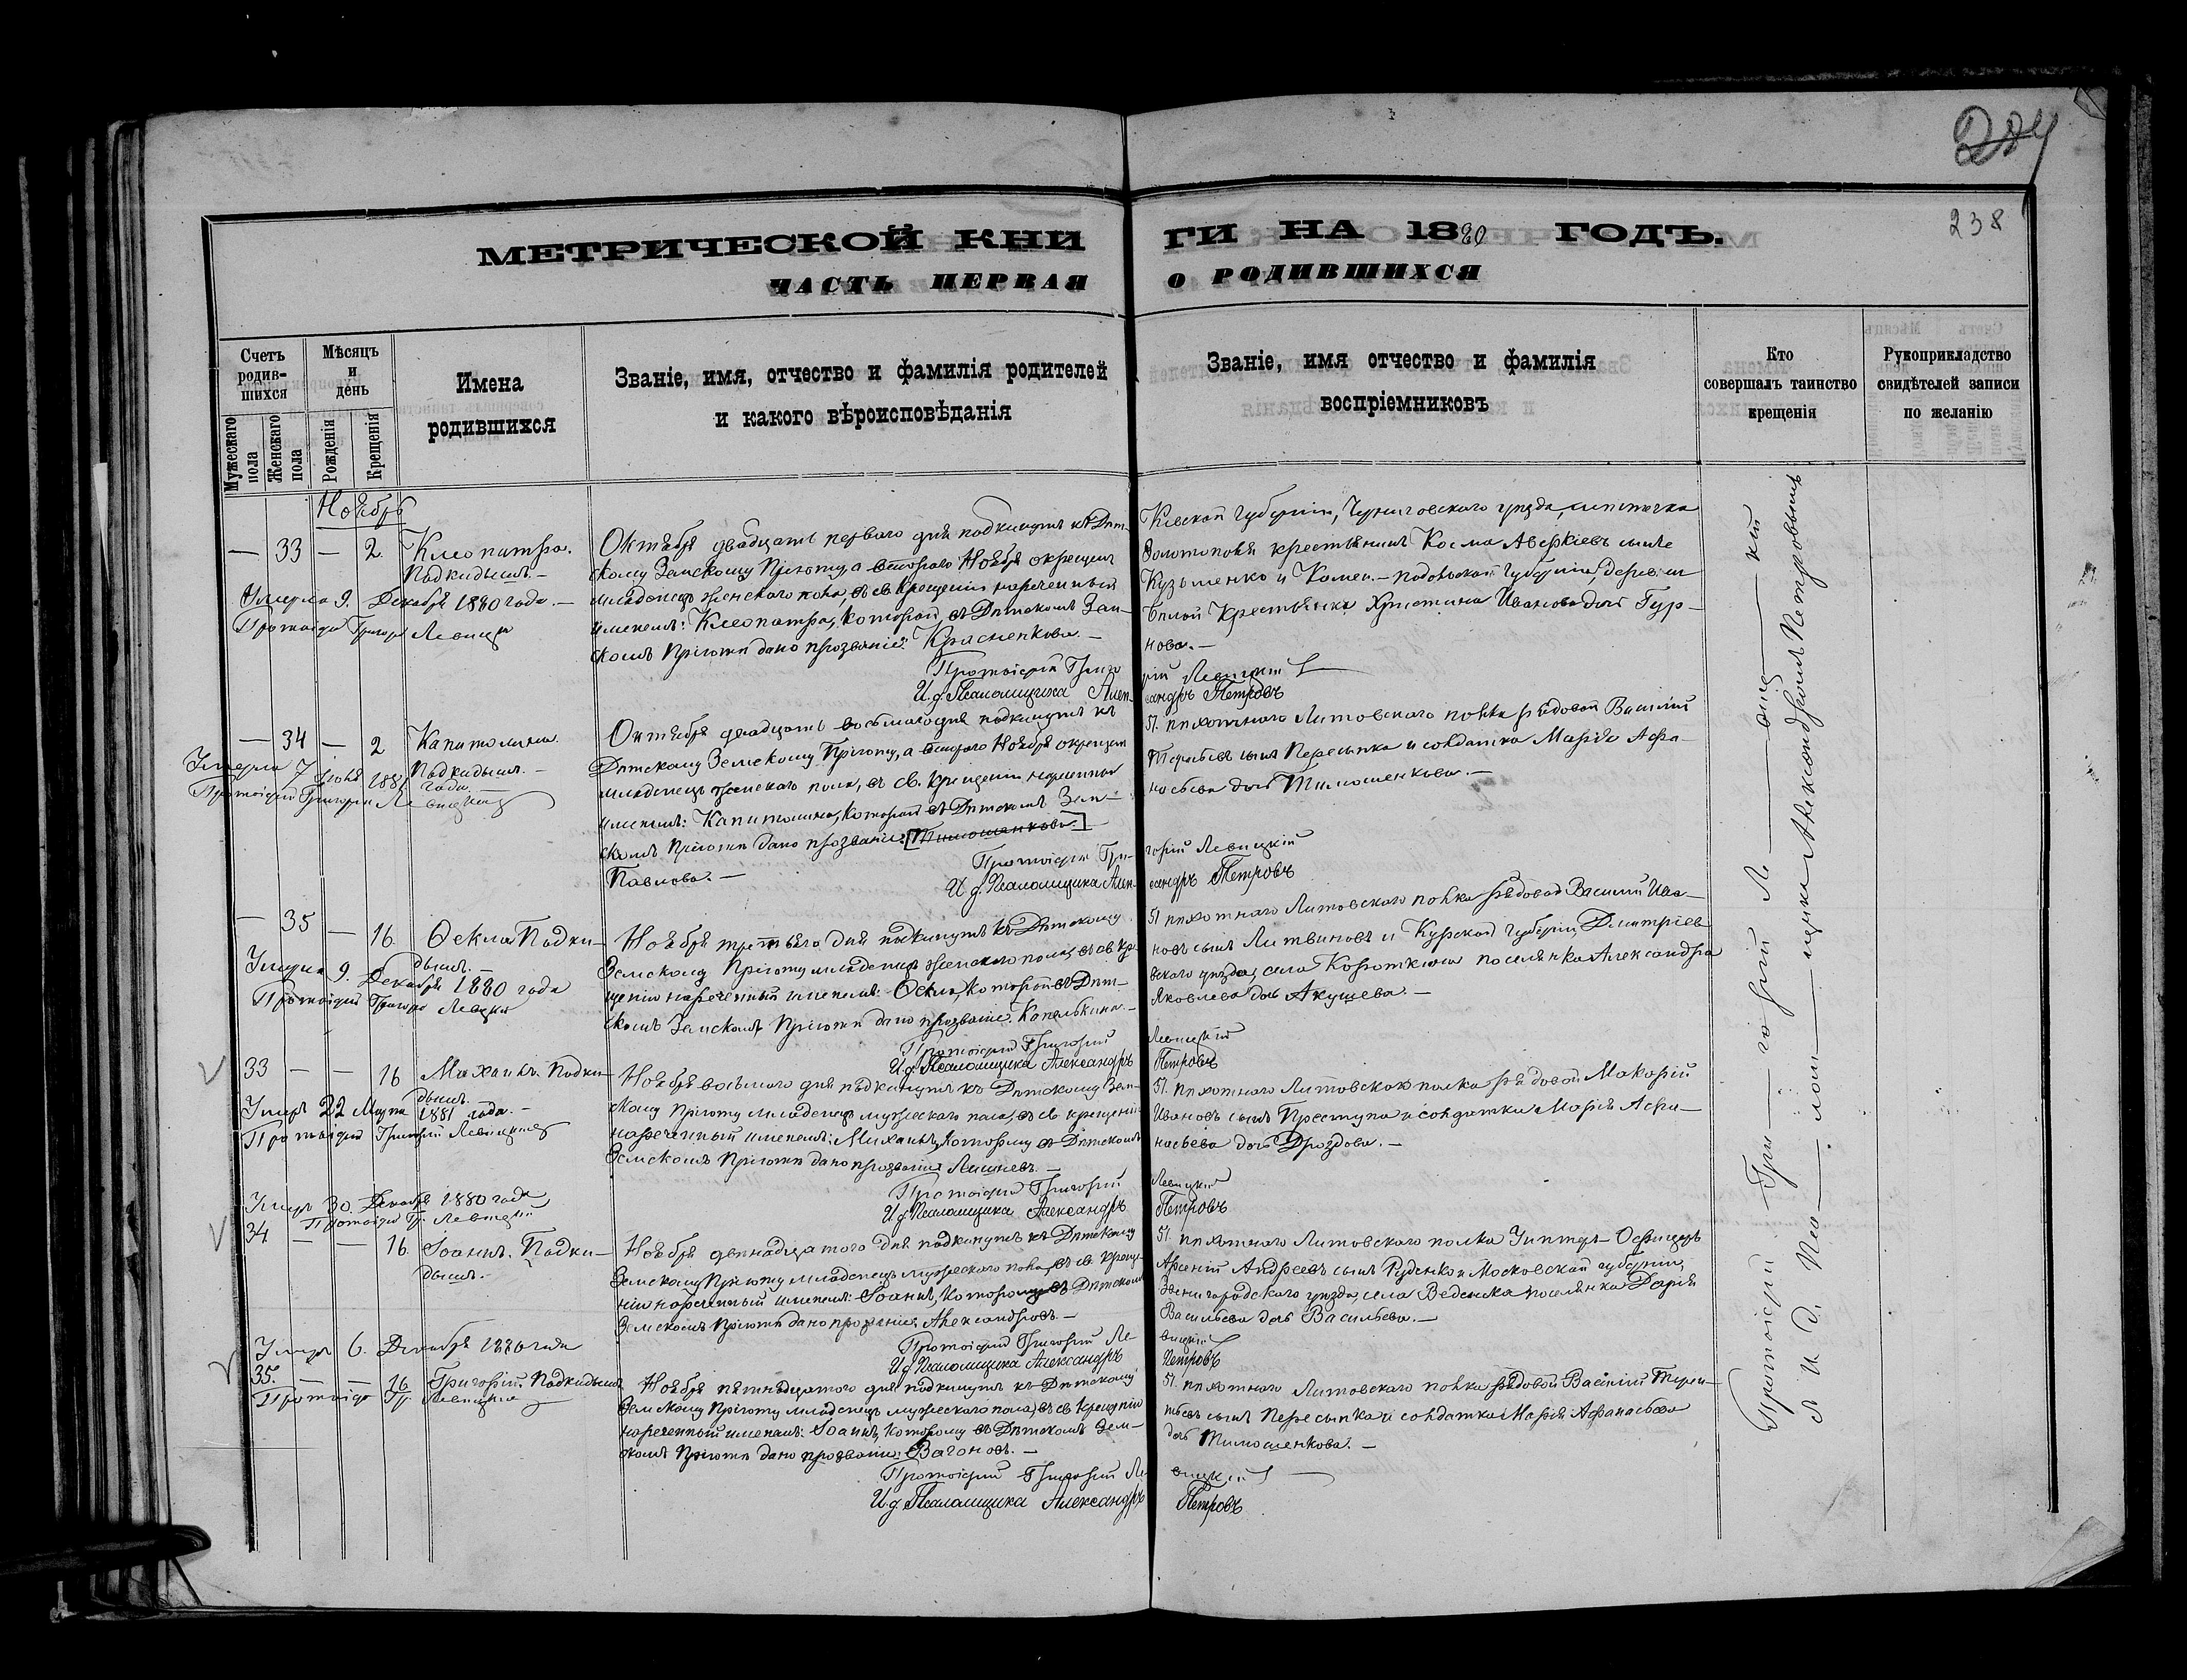 284
238
МЕТРИЧЕСКОЙ КНИ ГИ НА 1880 ГОДЪ.
ЧАСТЬ ПЕРВАЯ О РОДИВШИХСЯ
Счетъ родив-шихся
Мужескаго пола
Женскаго пола
Мѣсяцъ и день
Рожденія
Крещенія
Имена родившихся
Званіе, имя, отчество и фамилія родителей
и какого вѣроисповѣданія
Званіе, имя отчество и фамилія
воспріемниковъ
Кто
совершалъ таинство
крещенія
Рукоприкладство
свидѣтелей записи
по желанію
Ноябрь
— 33 — 2. Клеопатра.
Подкидышъ.—
Умерла 9. Декабря 1880 года.—
Протоіерей Григорій Левицкій
Октября двадцать перваго дня подкинутъ къ Дѣт-
скому Земскому Пріюту, а втораго Ноября окрещенъ
младенецъ женскаго пола, въ св. крещеніи нареченный
именемъ: Клеопатра, которой въ Дѣтскомъ Зем-
скомъ Пріютѣ дано прозваніе: Красненкова.—
Кіевской губерніи, уѣзда, мѣстечка
крестьянинъ Косма Аверкіевъ сынъ
Кузьменко и Камен.-подольской губерніи, деревни
Бѣлой крестьянка Христина Иванова дочь Гур-
нова.—
Протоіерей Григорій Левицкій
И. д. Псаломщика Александръ Петровъ
— 34 — 2 Капитолина.
Подкидышъ.—
Умерла 7 Іюня 1881 года.
Протоіерей Григорій Левицкій
Октября двадцать восьмаго дня подкинутъ къ
Дѣтскому Земскому Пріюту, а втораго Ноября окрещенъ
младенецъ женскаго пола, въ св. крещеніи нареченный
именемъ: Капитолина, которой въ Дѣтскомъ Зем-
скомъ Пріютѣ дано прозваніе: [Тимошенкова]
Павлова.—
51. пѣхотнаго Литовскаго полка рядовой Василій
Терентьевъ сынъ Пересыпка и солдатка Марія Афа-
насьева дочь Тимошенкова.—
Протоіерей Григорій Левицкій
И. д. Псаломщика Александръ Петровъ
— 35 — 16. Ѳекла Подки-
дышъ.—
Умерла 9. Декабря 1880 года
Протоіерей Григорій Левицкій
Ноября третьяго дня подкинутъ къ Дѣтскому
Земскому Пріюту младенецъ женскаго пола, въ св. кре-
щеніи нареченный именемъ: Ѳекла, которой въ Дѣт-
скомъ Земскомъ Пріютѣ дано прозваніе: Капелькина.—
51 пѣхотнаго Литовскаго полка рядовой Василій Ива-
новъ сынъ Литвиновъ и Курской губерніи, Дмитріев-
скаго уѣзда, села поселянка Александра
Яковлева дочь Акушева.—
Протоіерей Григорій Левицкій
И. д. Псаломщика Александръ Петровъ
33 — — 16 Михаилъ. Подки-
дышъ.
Умеръ 22 Марта 1881 года.—
Протоіерей Григорій Левицкій
Ноября восьмаго дня подкинутъ къ Дѣтскому Зем-
скому Пріюту младенецъ мужескаго пола, въ св. крещеніи
нареченный именемъ: Михаилъ, которому въ Дѣтскомъ
Земскомъ Пріютѣ дано прозваніе: Лишневъ.—
51. пѣхотнаго Литовскаго полка рядовой Макарій
Ивановъ сынъ Преступа и солдатка Марія Афа-
насьева дочь Дроздова.—
Протоіерей Григорій Левицкій
И. д. Псаломщика Александръ Петровъ
Умеръ 30. Декабря 1880 года
Протоіерей Гр. Левицкій
34 — — 16. Іоаннъ. Подки-
дышъ.—
Ноября двѣнадцатого дня подкинутъ къ Дѣтскому
Земскому Пріюту младенецъ мужескаго пола, въ св. креще-
ніи нареченный именемъ: Іоаннъ, которому въ Дѣтскомъ
Земскомъ Пріютѣ дано прозваніе Александровъ.—
51. пѣхотнаго Литовскаго полка Унтеръ-Офицеръ
Арсеній Андреевъ сынъ Руденко и Московской губерніи,
Звенигородскаго уѣзда, села Веденска поселянка Дарія
Васильева дочь Васильева.—
Протоіерей Григорій Левицкій
И. д. Псаломщика Александръ Петровъ
Умеръ 6. Декабря 1880 года
35. — — 16. Григорій. Подкидышъ
Протоіерей Гр. Левицкій
Ноября пятнадцатого дня подкинутъ къ Дѣтскому
Земскому Пріюту младенецъ мужескаго пола, въ св. крещеніи
нареченный именемъ: Іоаннъ, которому въ Дѣтскомъ Зем-
скомъ Пріютѣ дано прозваніе: Вагоновъ.—
51. пѣхотнаго Литовскаго полка рядовой Василій Терен-
тьевъ сынъ Пересыпка и солдатка Марія Афанасьева
дочь Тимошенкова.—
Протоіерей Григорій Левицкій
И. д. Псаломщика Александръ Петровъ
Протоіерей Гри — горій Ле — виц — кій
и И. д. Пса — лом — щика Александромъ Петровымъ